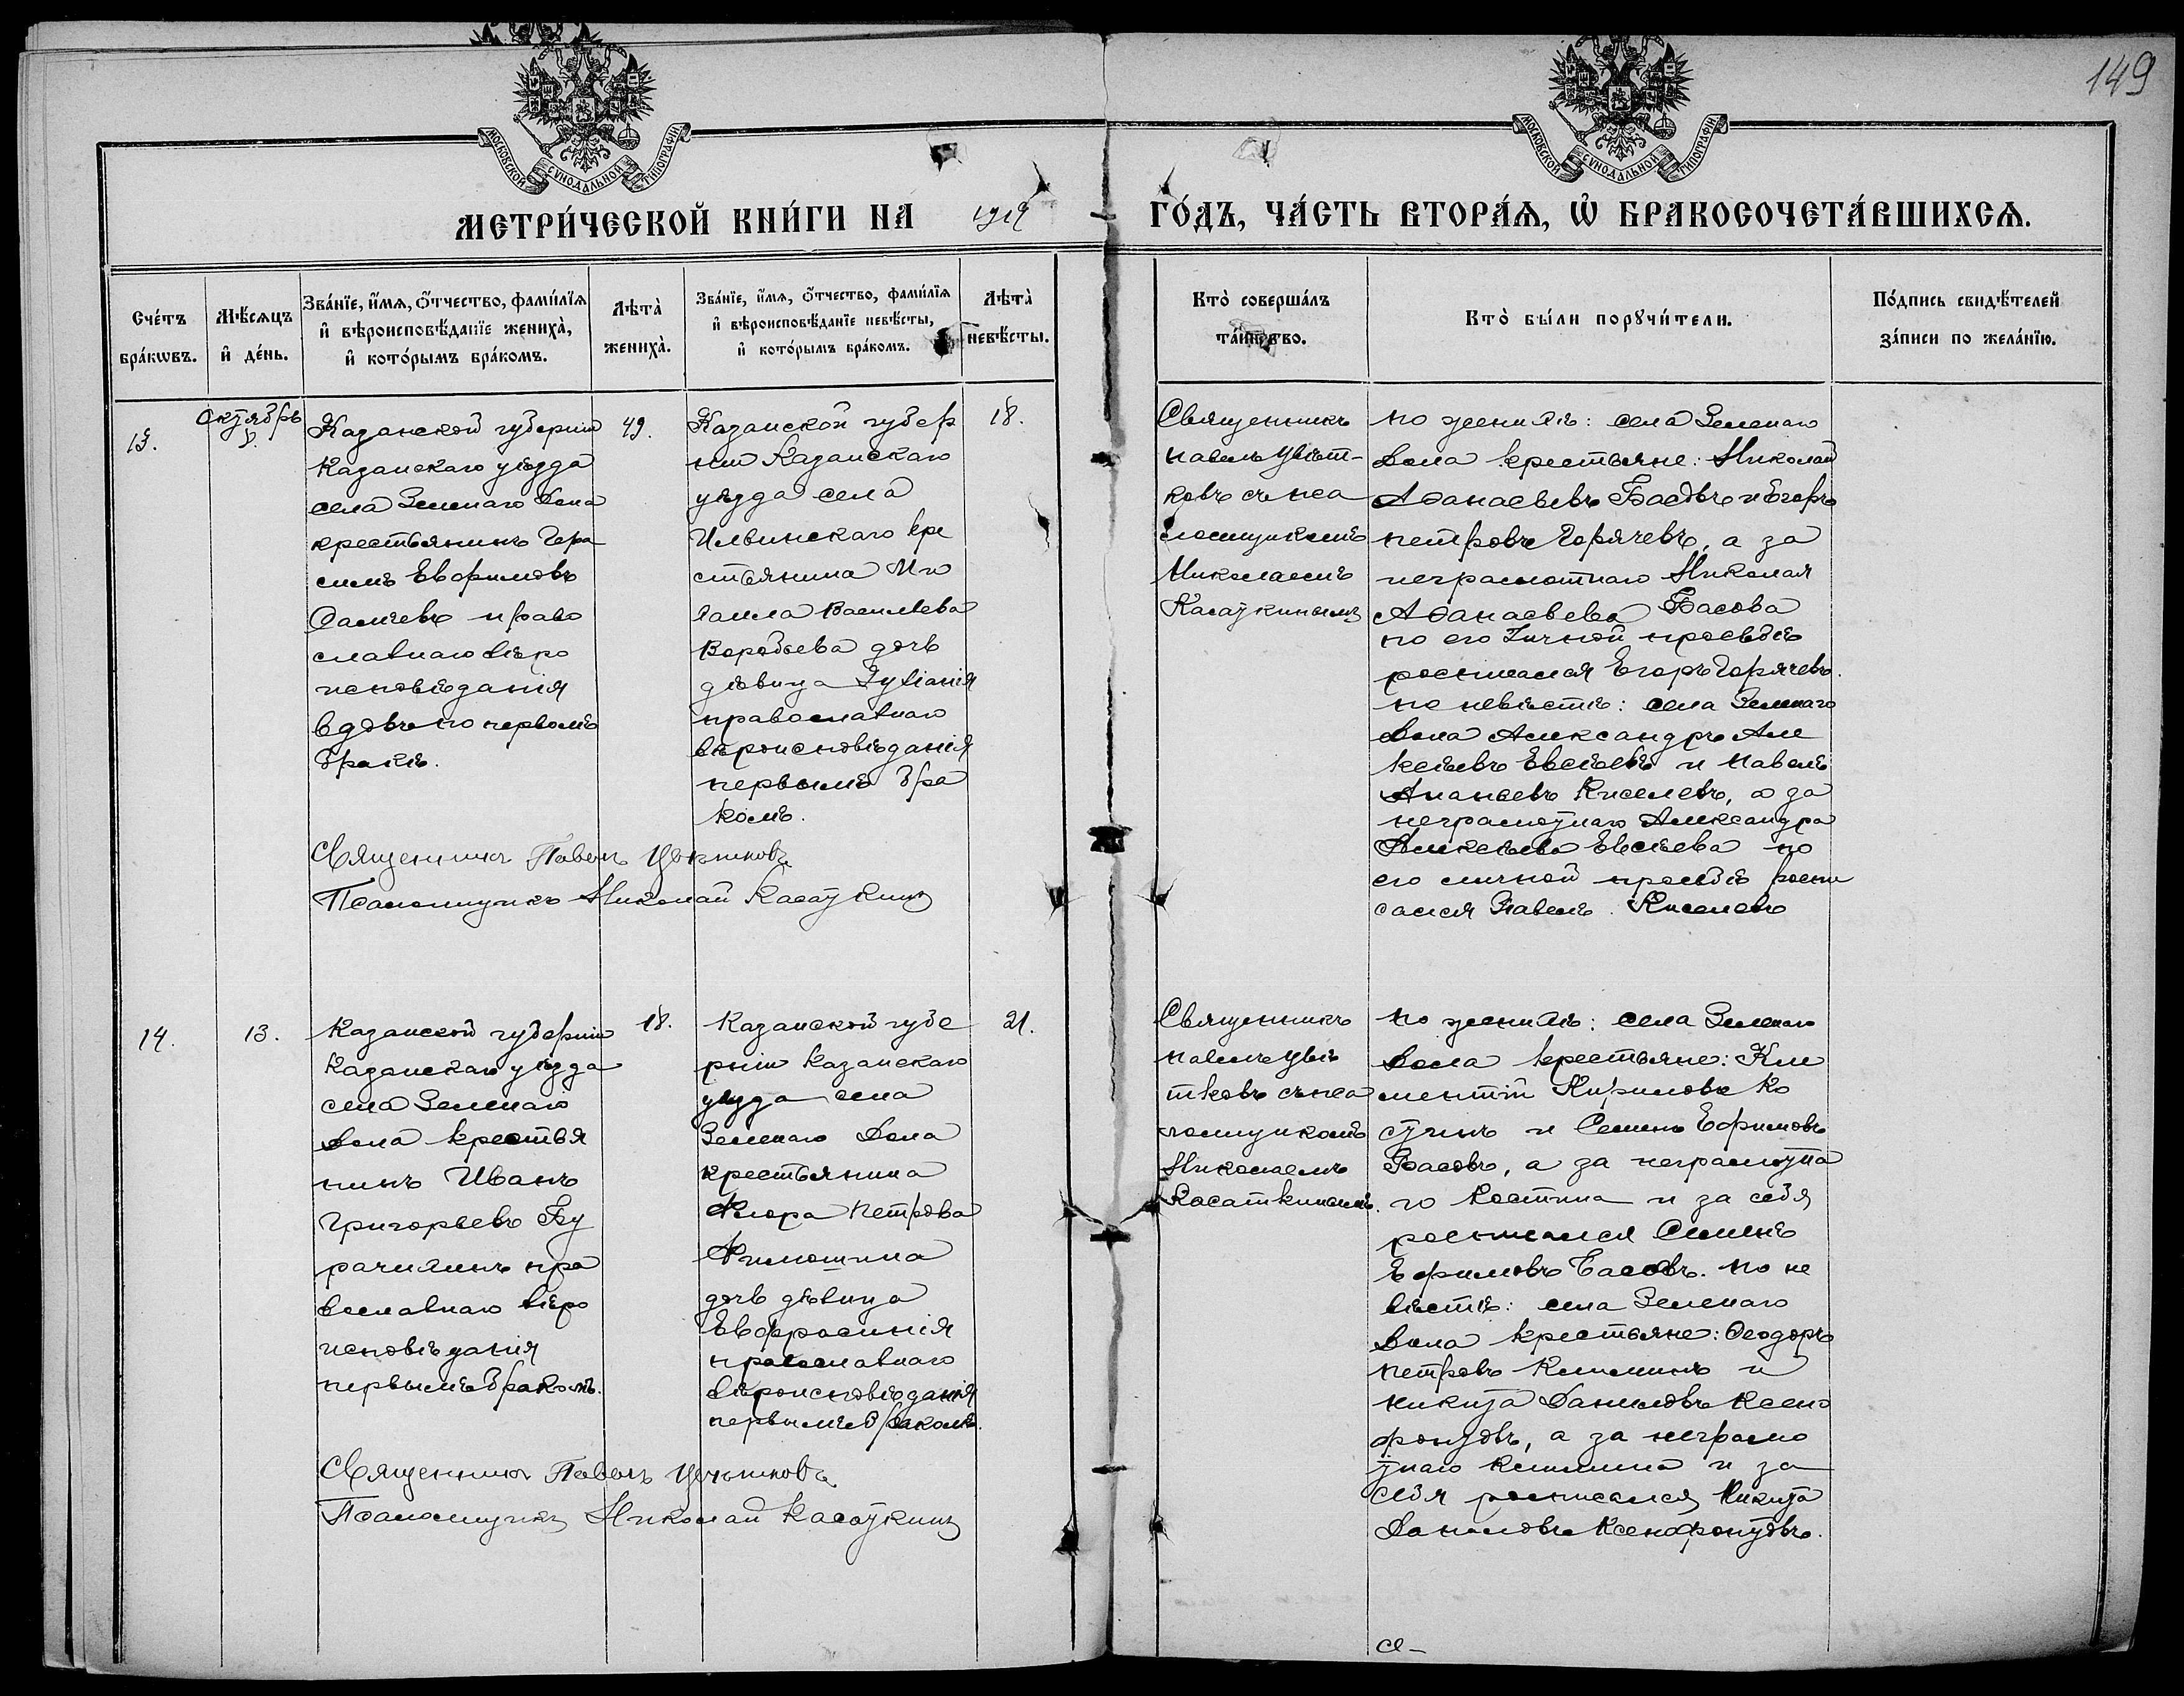 149
МОСКОВСКОЙ СѴНОДАЛЬНОЙ ТИПОГРАФІИ
МОСКОВСКОЙ СѴНОДАЛЬНОЙ ТИПОГРАФІИ
МЕТРИ́ЧЕСКОЙ КНИ́ГИ НА 1919 ГО́ДЪ, ЧА́СТЬ ВТОРА́Ѧ, Ѡ҆ БРАКОСОЧЕТА́ВШИХСѦ.
Сче́тъ
бра́кѡвъ.
Мѣ́сѧцъ
и҆ де́нь.
Зва́нїе, и҆́мѧ, ѻ҆́тчество, фами́лїѧ
и҆ вѣроисповѣ́данїе жениха̀,
и҆ кото́рымъ бра́комъ.
Лѣта̀
жениха̀.
Зва́нїе, и҆́мѧ, ѻ҆́тчество, фами́лїѧ
и҆ вѣроисповѣ́данїе невѣ́сты,
и҆ кото́рымъ бра́комъ.
Лѣта̀
невѣ́сты.
Кто̀ соверша́лъ
та́инство.
Кто̀ бы́ли порꙋчи́тели.
По́дпись свидѣ́телей
за́писи по жела́нїю.
13.
Октябрь
Казанской губерніи
Казанскаго уѣзда
села Зеленаго Дола
крестьянинъ Гера
симъ Евфимовъ
православнаго вѣро
исповѣданія
вдовъ по первомъ
бракѣ.
49.
Казанской губер
ніи Казанскаго
уѣзда села
Ильинскаго кре
стьянина Ми
хаила Васильева
Воробьева дочь
дѣвица Іуліанія
православнаго
вѣроисповѣданія
первымъ бра
комъ.
18.
Священникъ
Павелъ Цвѣт-
ковъ съ пса
ломщикомъ
Николаемъ
Касаткинымъ
По женихѣ: села Зеленаго
Дола крестьяне: Николай
Аѳанасьевъ Басовъ и Егоръ
Петровъ Горячевъ, а за
неграмотнаго Николая
Аѳанасьева Басова
по его личной просьбѣ
росписался Егоръ Горячевъ.
По невѣстѣ: села Зеленаго
Дола Александръ Але
ксѣевъ Евсѣевъ и Павелъ
Ананьевъ Киселевъ, а за
неграмотнаго Александра
Алексѣева Евсѣева по
его личной просьбѣ роспи
сался Павелъ Киселевъ
Священникъ Павелъ Цвѣтковъ
Псаломщикъ Николай Касаткинъ
14.
13.
Казанской губерніи
Казанскаго уѣзда
села Зеленаго
Дола крестья
нинъ Иванъ
Григорьевъ Бу
рачихинъ пра
вославнаго вѣро
исповѣданія
первымъ бракомъ.
18.
Казанской губе
рніи Казанскаго
уѣзда села
Зеленаго Дола
крестьянина
Флора Петрова
Филюшина
дочь дѣвица
Евфросинія
православнаго
вѣроисповѣданія
первымъ бракомъ.
21.
Священникъ
Павелъ Цвѣ
тковъ съ пса
ломщикомъ
Николаемъ
Касаткинымъ.
По женихѣ: села Зеленаго
Дола крестьяне: Кли
ментій Кириловъ Ко
стинъ и Семенъ Ефимовъ
Басовъ, а за неграмотна
го Костина и за себя
росписался Семенъ
Ефимовъ Басовъ. По не
вѣстѣ: села Зеленаго
Дола крестьяне: Ѳеодоръ
Петровъ Климинъ и
Никита Даниловъ Ксено
фонтовъ, а за неграмо
тнаго Климина и за
себя росписался Никита
Даниловъ Ксенофонтовъ.
Священникъ Павелъ Цвѣтковъ
Псаломщикъ Николай Касаткинъ